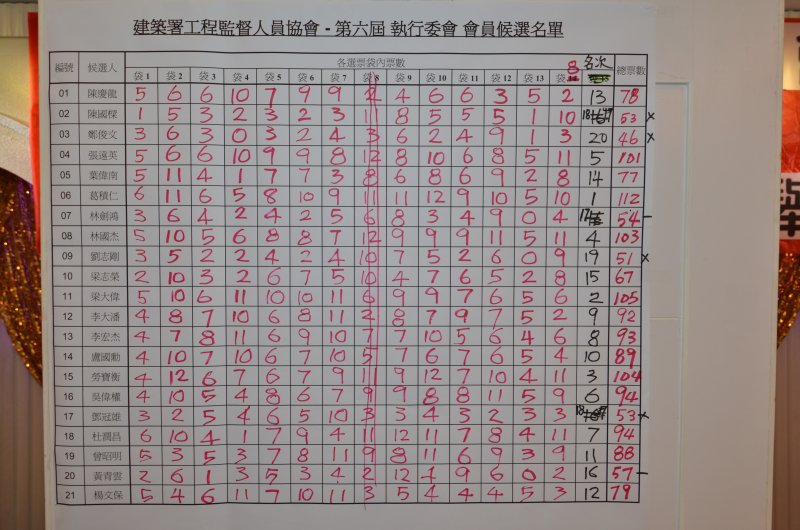 建築署工程監督人員協會 - 第六屆 執行委會 會員候選名單
編號 候選人 各選票袋內票數 8 名次 總票數
袋 1 袋 2 袋 3 袋 4 袋 5 袋 6 袋 7 袋 8 袋 9 袋 10 袋 11 袋 12 袋 13
01 陳慶龍 5 6 6 10 7 9 9 2 4 6 6 3 5 2 13 78
02 陳國樑 1 5 3 2 3 2 3 11 8 5 5 5 1 10 18 53 x
03 鄭俊文 3 6 3 0 3 2 4 3 6 2 4 9 1 3 20 46 x
04 張遠英 5 6 6 10 9 9 8 12 8 10 6 8 5 11 5 101
05 葉偉南 5 11 4 1 7 7 3 8 6 8 6 9 2 8 14 77
06 葛積仁 6 11 6 5 8 10 9 11 11 12 9 10 5 10 1 112
07 林劍鴻 3 6 4 2 4 2 5 6 8 3 4 9 0 4 17 54 –
08 林國杰 5 10 5 6 8 8 7 12 9 9 9 11 5 11 4 103
09 劉志剛 3 5 2 2 4 2 4 10 7 5 2 6 0 9 19 51 x
10 梁志榮 2 10 3 2 6 7 5 10 4 7 6 5 2 8 15 67
11 梁大偉 5 10 6 11 10 10 11 6 9 9 7 6 5 6 2 105
12 李大潘 4 8 7 10 6 8 11 2 8 7 9 7 5 2 9 92
13 李宏杰 4 7 8 11 6 9 10 7 7 10 5 6 4 6 8 93
14 盧國勳 4 10 7 10 6 7 10 5 7 6 7 6 5 4 10 89
15 勞寶衡 4 12 6 7 6 7 9 11 9 12 7 10 4 11 3 104
16 吳偉權 4 10 5 4 8 6 7 9 9 8 8 11 5 9 6 94
17 鄧冠雄 3 2 5 4 6 5 10 3 3 4 3 2 3 3 18 53 x
18 杜潤昌 6 10 4 1 7 9 4 11 12 11 7 8 4 11 7 94
19 曾昭明 5 3 5 3 7 8 11 9 8 11 6 9 3 9 11 88
20 黃青雲 2 6 1 3 5 3 4 2 12 4 9 6 0 2 16 57 –
21 楊文保 5 4 6 11 7 10 11 3 5 4 4 4 5 3 12 79